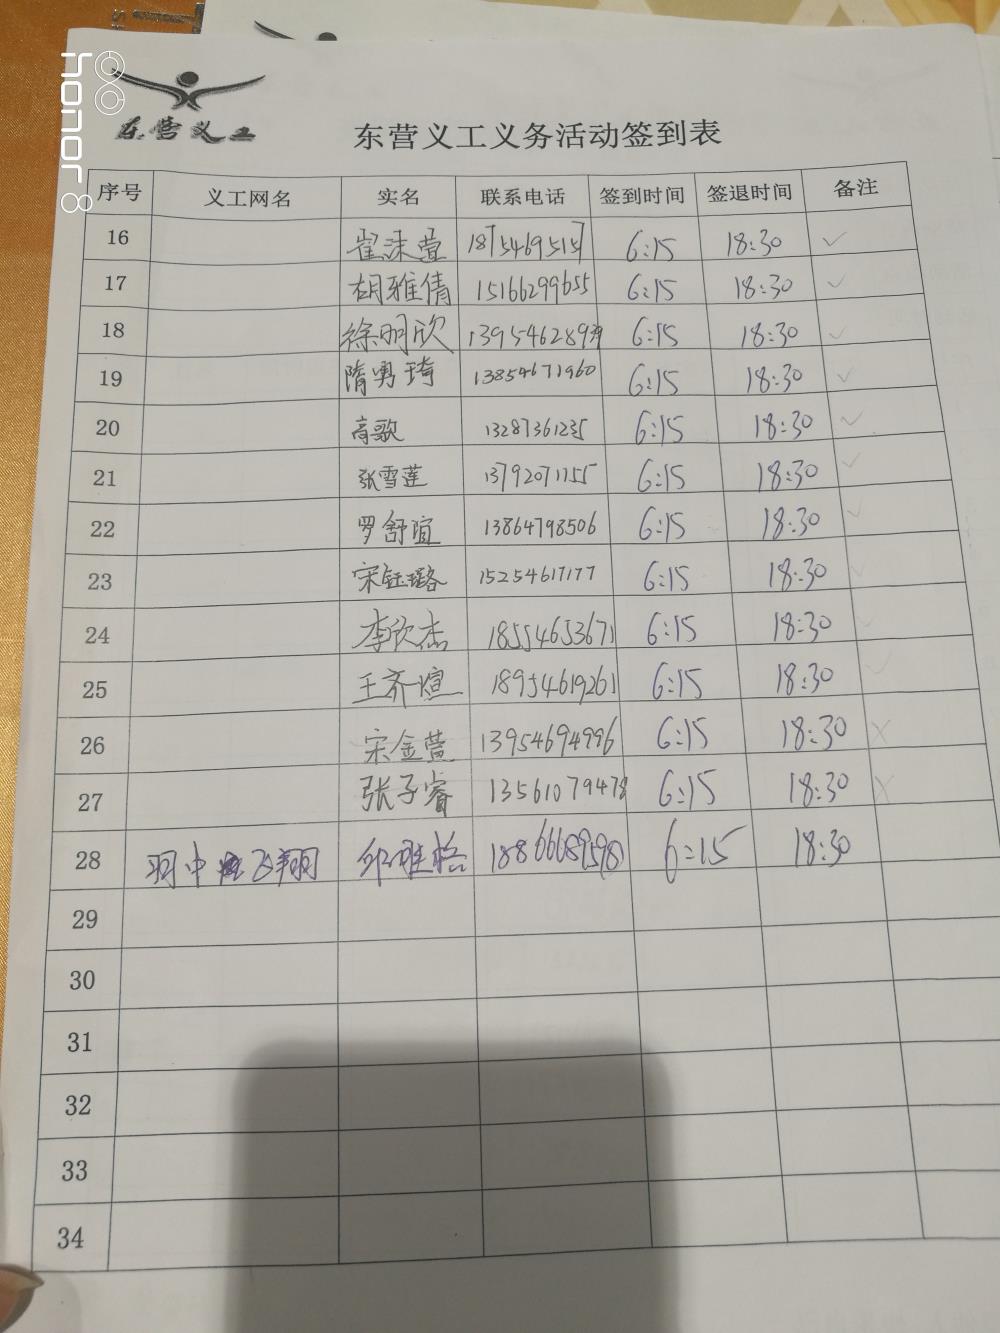 honor 8
东营义工
东营义工义务活动签到表
序号 义工网名 实名 联系电话 签到时间 签退时间 备注
16 崔沫萱 18754695157 6:15 18:30 ✓
17 胡雅倩 15166299655 6:15 18:30 ✓
18 徐明欣 6:15 18:30 ✓
19 隋勇琦 13854671960 6:15 18:30 ✓
20 高歌 13287361235 6:15 18:30 ✓
21 张雪莲 13792071155 6:15 18:30 ✓
22 罗舒谊 13864798506 6:15 18:30 ✓
23 宋钰璐 15254617177 6:15 18:30 ✓
24 李欣杰 18554653671 6:15 18:30 ✓
25 王齐煊 18954619261 6:15 18:30 ✓
26 宋金萱 13954694996 6:15 18:30 ×
27 张子睿 13561079478 6:15 18:30 ×
28 羽中 飞翔 邱雅格 6:15 18:30
29
30
31
32
33
34